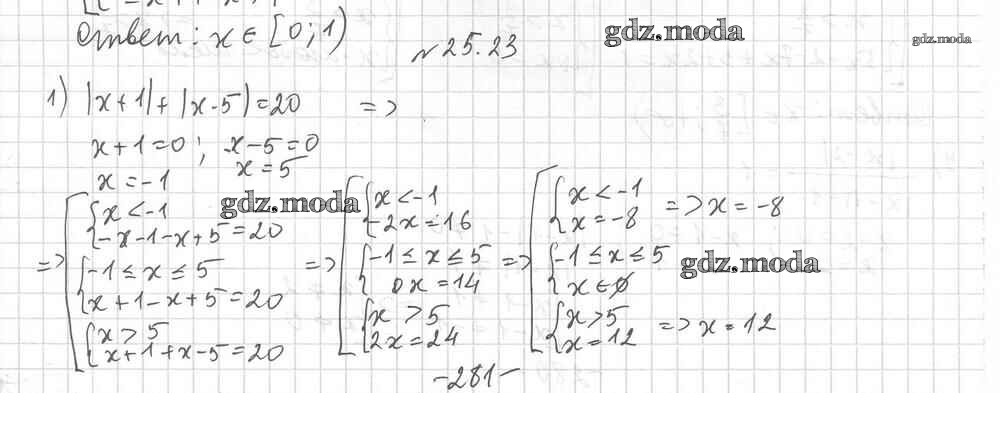 Ответ: x ∈ [0; 1)
gdz.moda
gdz.moda
№ 25.23
1) |x+1|+|x-5|=20 =>
x+1=0; x-5=0
x=-1 x=5
gdz.moda
=> [ { x<-1
-x-1-x+5=20
{ -1≤x≤5
x+1-x+5=20
{ x>5
x+1+x-5=20
=> [ { x<-1
-2x=16
{ -1≤x≤5
0x=14
{ x>5
2x=24
=> [ { x<-1
x=-8 => x=-8
{ -1≤x≤5
x∈∅
gdz.moda
{ x>5
x=12 => x=12
-281-